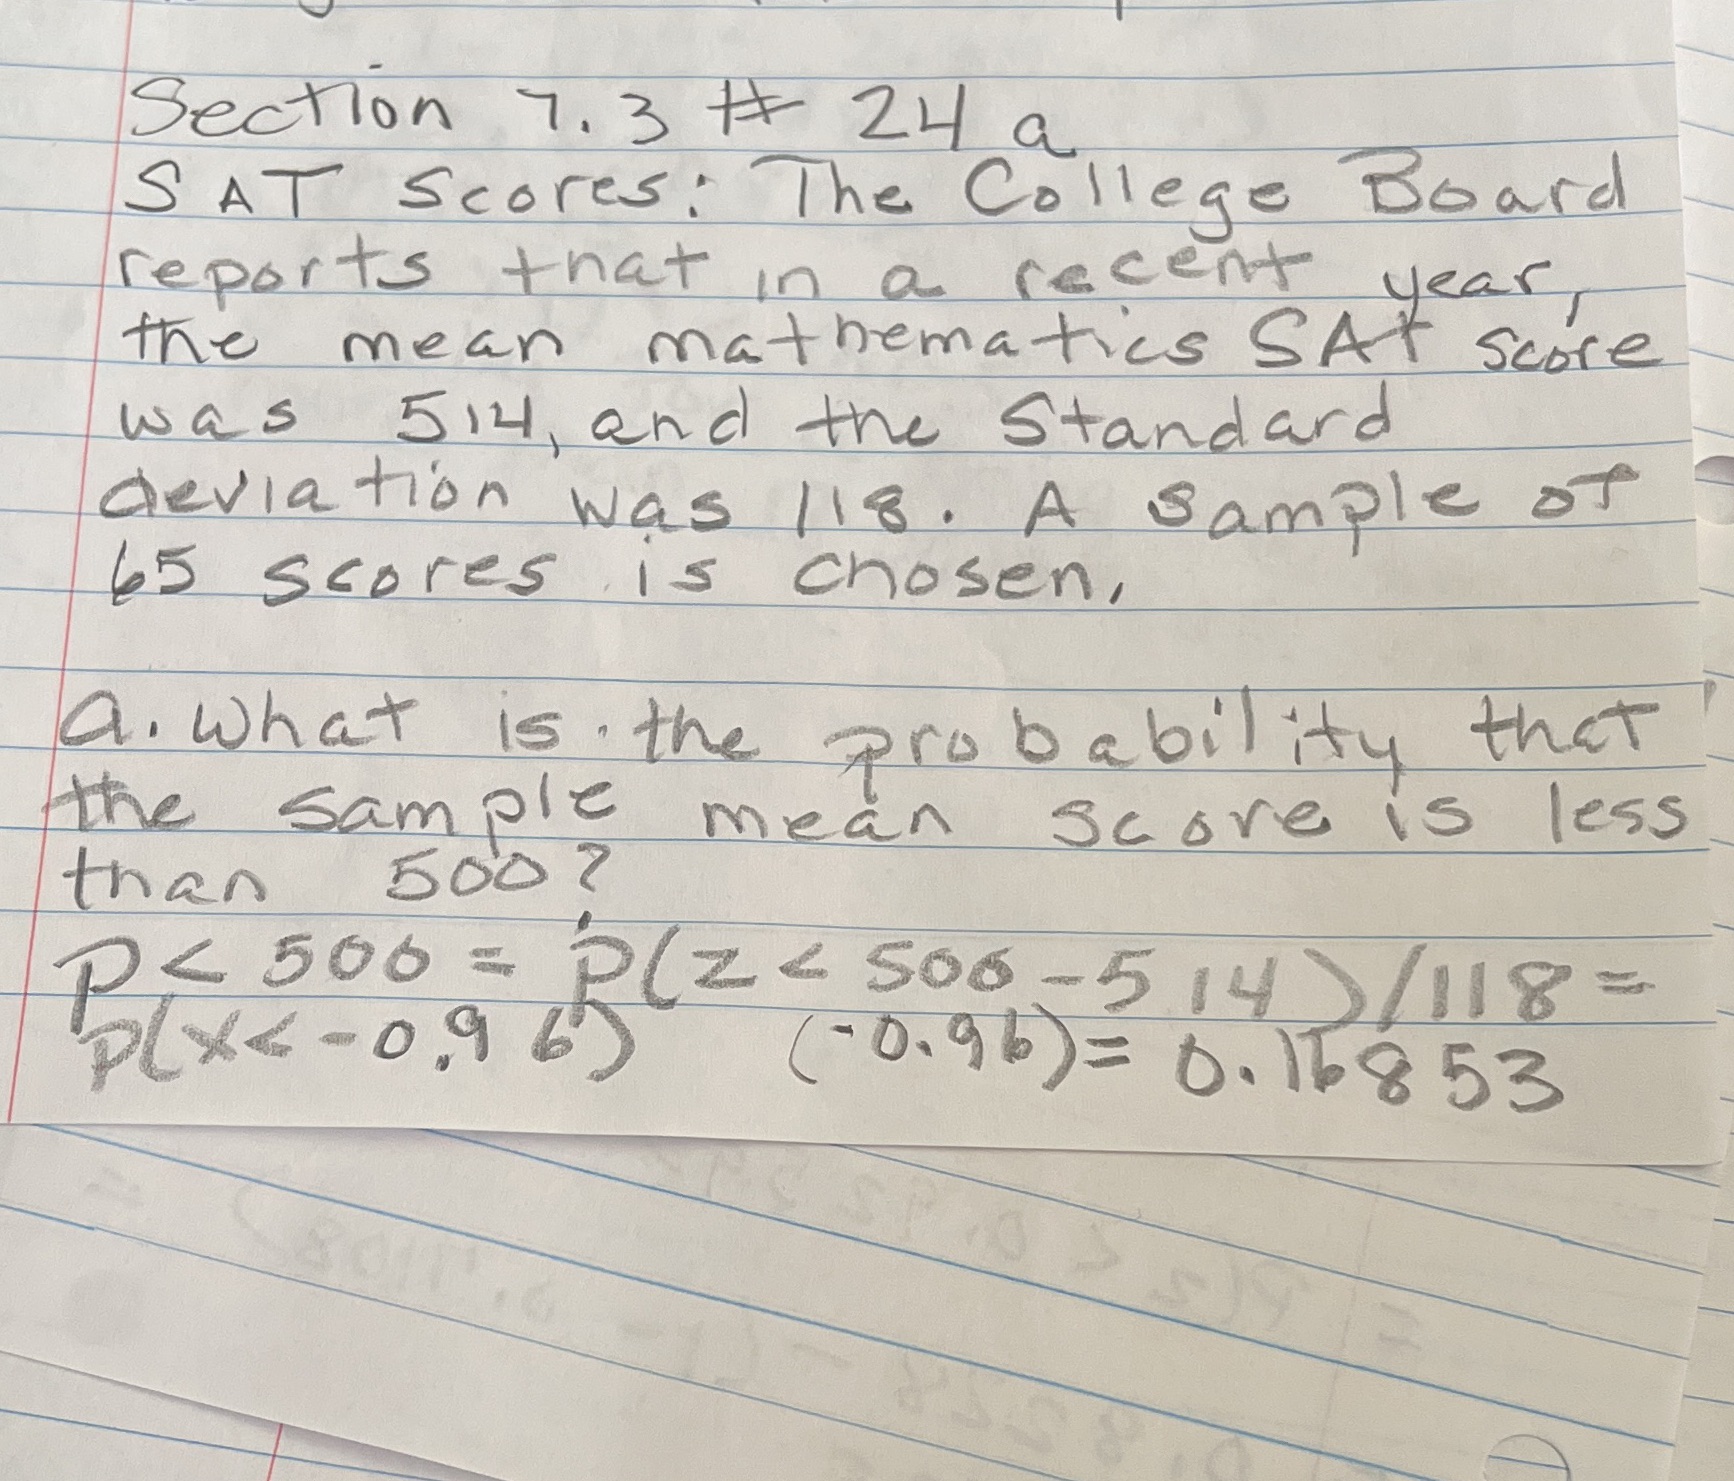 Section 7.3 # 24 a
SAT Scores: The College Board
reports that in a recent year,
the mean mathematics SAT score
was 514, and the Standard
deviation was 118. A sample of
65 scores is chosen.
a. What is the probability that
the sample mean score is less
than 500?
P < 500 = P(z < 500 - 514)/118 =
P(x < -0.96) (-0.96) = 0.16853